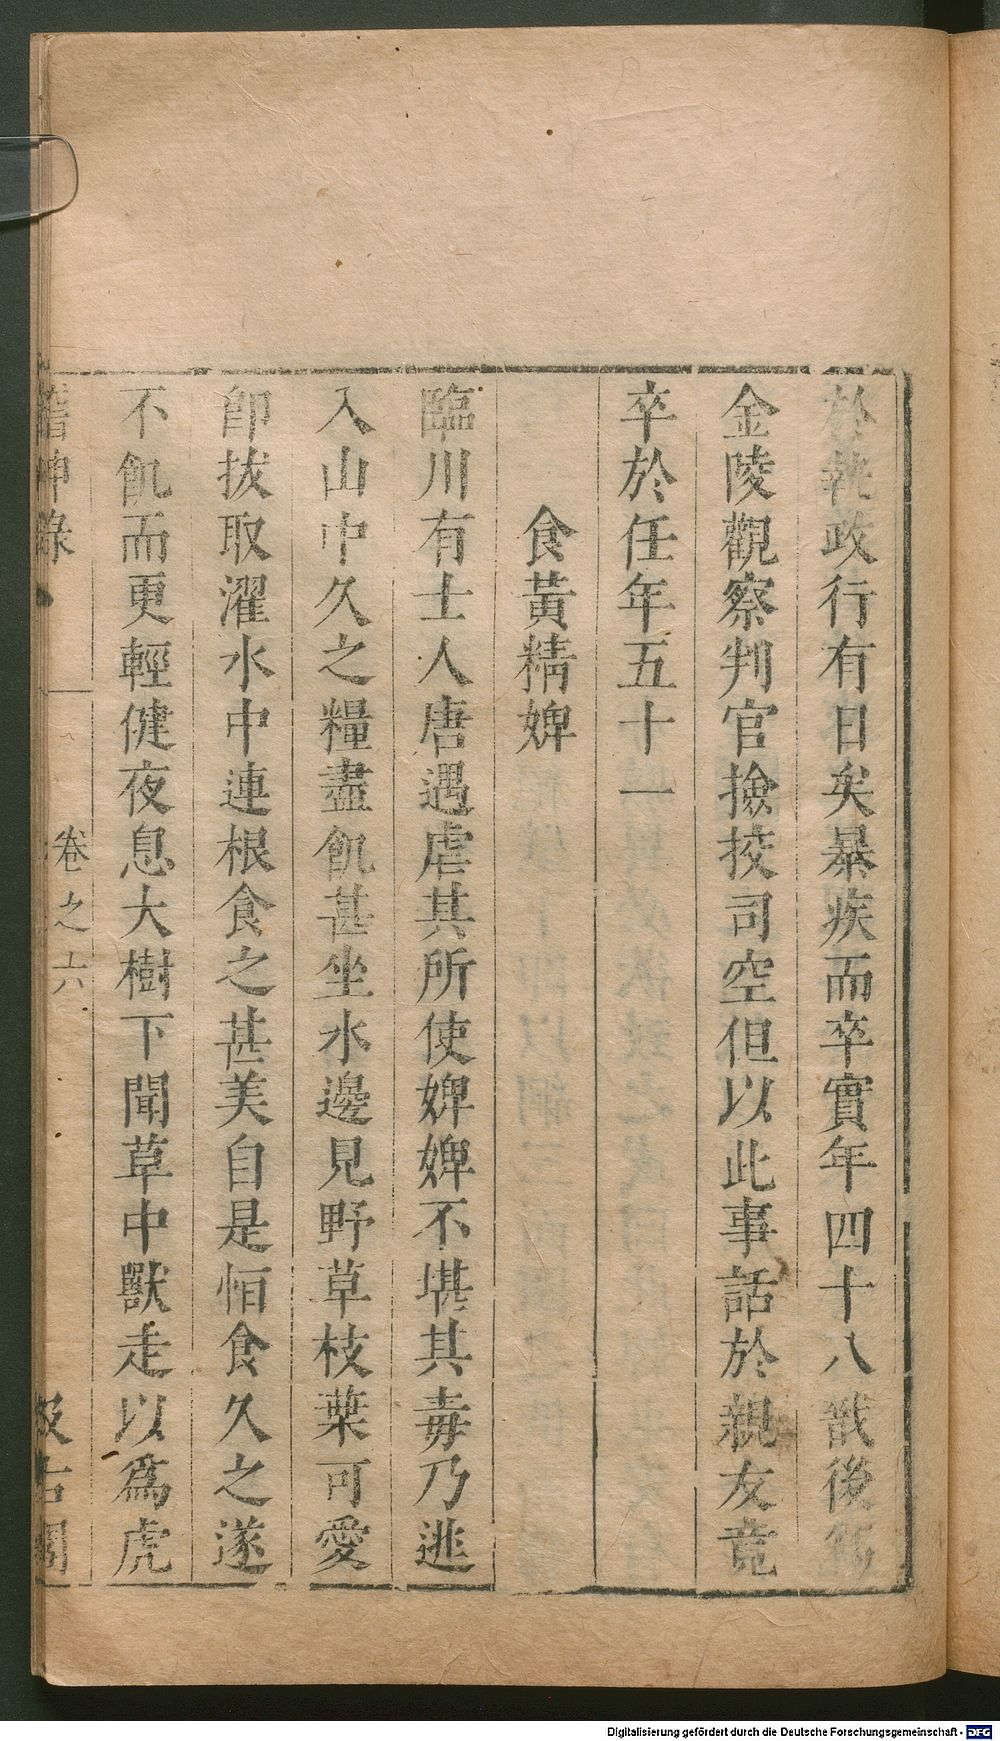 於執政行有日矣暴疾而卒實年四十八戬後爲
金陵觀察判官撿挍司空但以此事話於親友竟
卒於任年五十一
食黃精婢
臨川有士人唐遇虐其所使婢婢不堪其毒乃逃
入山中久之糧盡飢甚坐水邊見野草枝葉可愛
卽拔取濯水中連根食之甚美自是恒食久之遂
不飢而更輕健夜息大樹下聞草中獸走以爲虎
稽神錄 卷之六 汲古閣
Digitalisierung gefördert durch die Deutsche Forschungsgemeinschaft - DFG